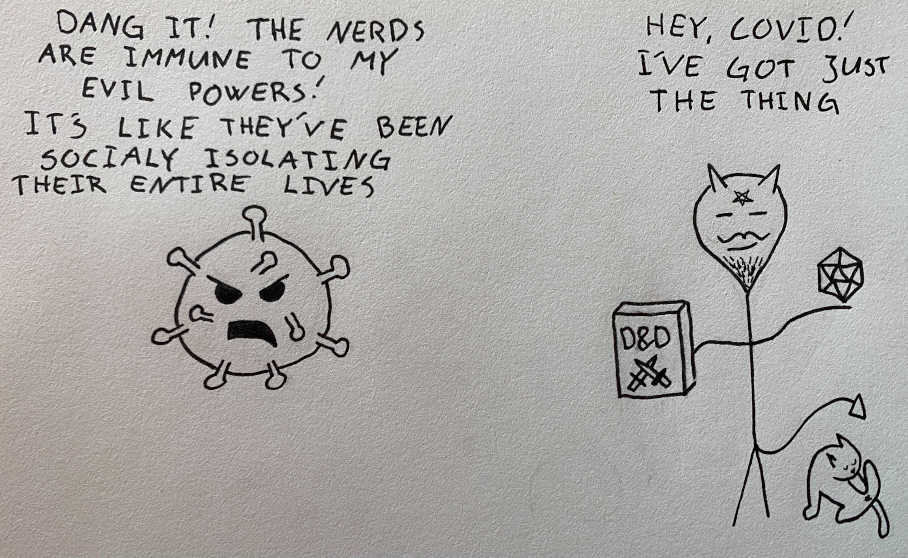 DANG IT! THE NERDS
ARE IMMUNE TO MY
EVIL POWERS!
IT'S LIKE THEY'VE BEEN
SOCIALY ISOLATING
THEIR ENTIRE LIVES
HEY, COVID!
I'VE GOT JUST
THE THING
D&D